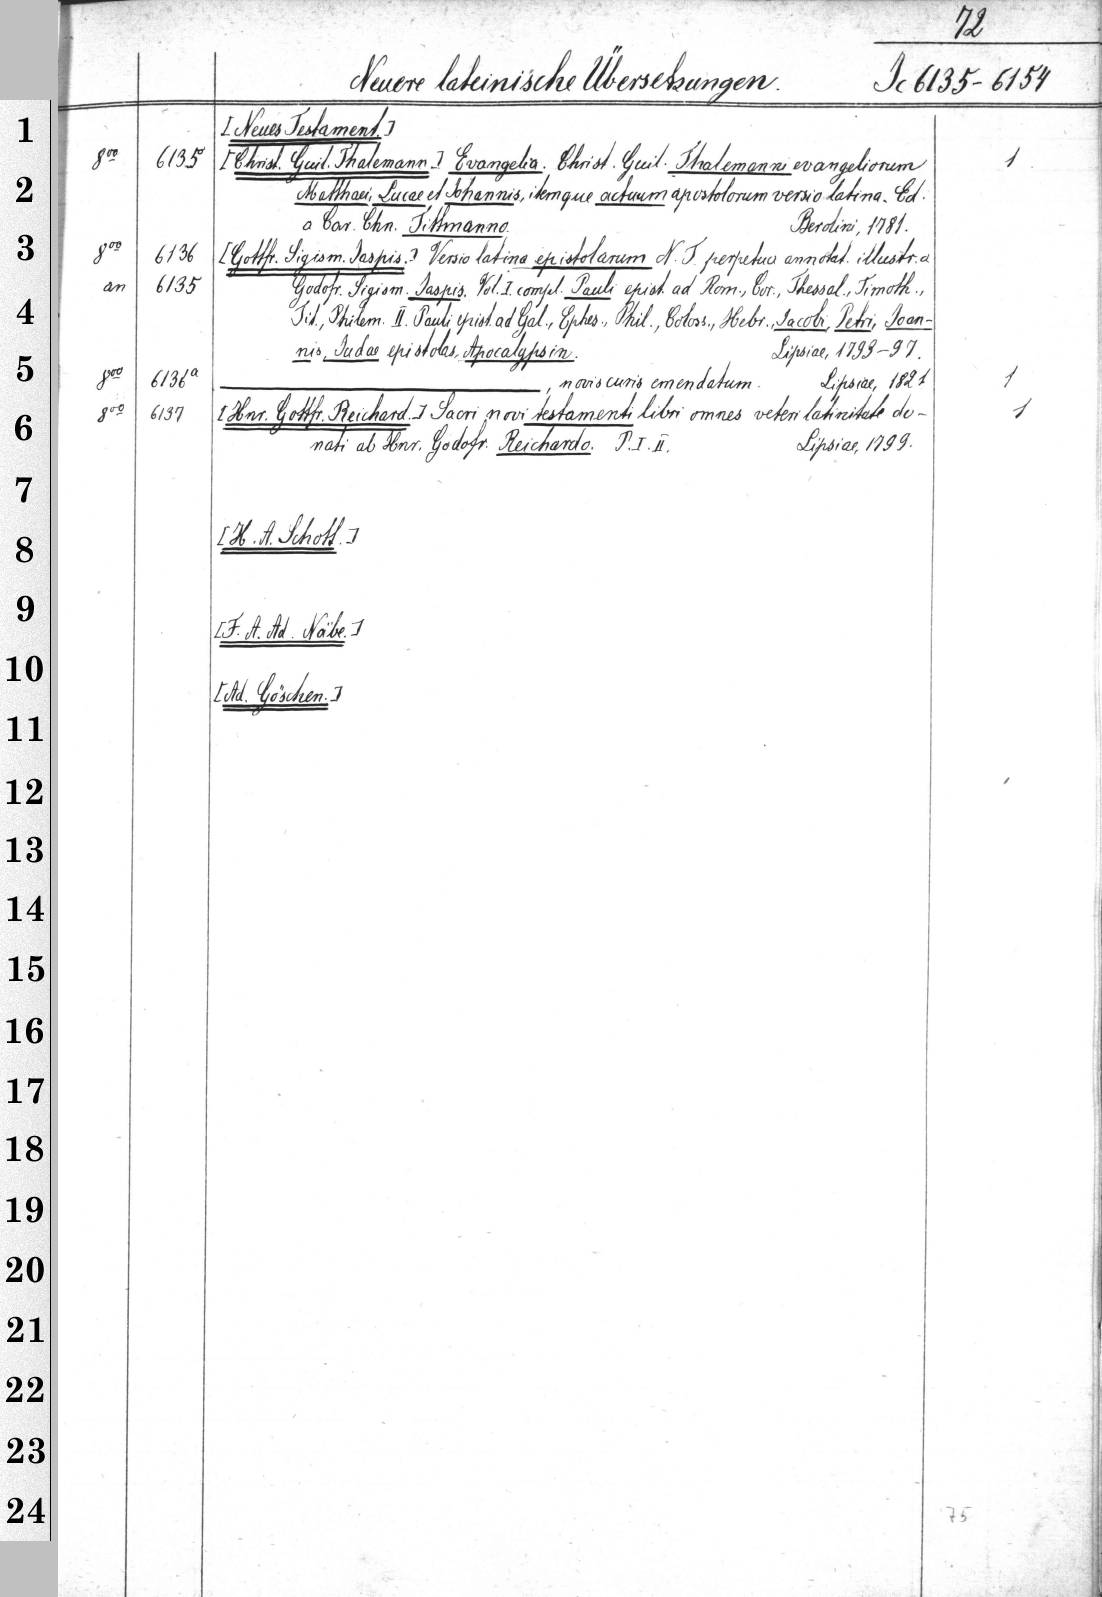 72
Neuere lateinische Übersetzungen. Jc 6135-6154
[Neues Testament.]
8oo 6135 [Christ. Guil. Thalemann.] Evangelia. Christ. Guil. Thalemanni evangeliorum 1
Matthaei, Lucae et Johannis, itemque actuum apostolorum versio latina. Ed.
a Car. Chn. Tittmanno. Berolini, 1781.
8oo 6136 [Gottfr. Sigism. Jaspis.] Versio latina epistolarum N. T. perpetua annotat. illustr. a
an 6135 Godofr. Sigism. Jaspis. Vol. I. compl. Pauli epist. ad Rom., Cor., Thessal., Timoth.,
Tit., Philem. II. Pauli epist. ad Gal., Ephes., Phil., Coloss., Hebr., Jacobi, Petri, Joan-
nis, Judae epistolas, Apocalypsin. Lipsiae, 1793-97.
8oo 6136a , novis curis emendatum. Lipsiae, 1821 1
8oo 6137 [Hnr. Gottfr. Reichard.] Sacri novi testamenti libri omnes veteri latinitate do- 1
nati ab Hnr. Godofr. Reichardo. P. I. II. Lipsiae, 1799.
[H. A. Schott.]
[F. A. Ad. Näbe.]
[Ad. Göschen.]
75
1
2
3
4
5
6
7
8
9
10
11
12
13
14
15
16
17
18
19
20
21
22
23
24